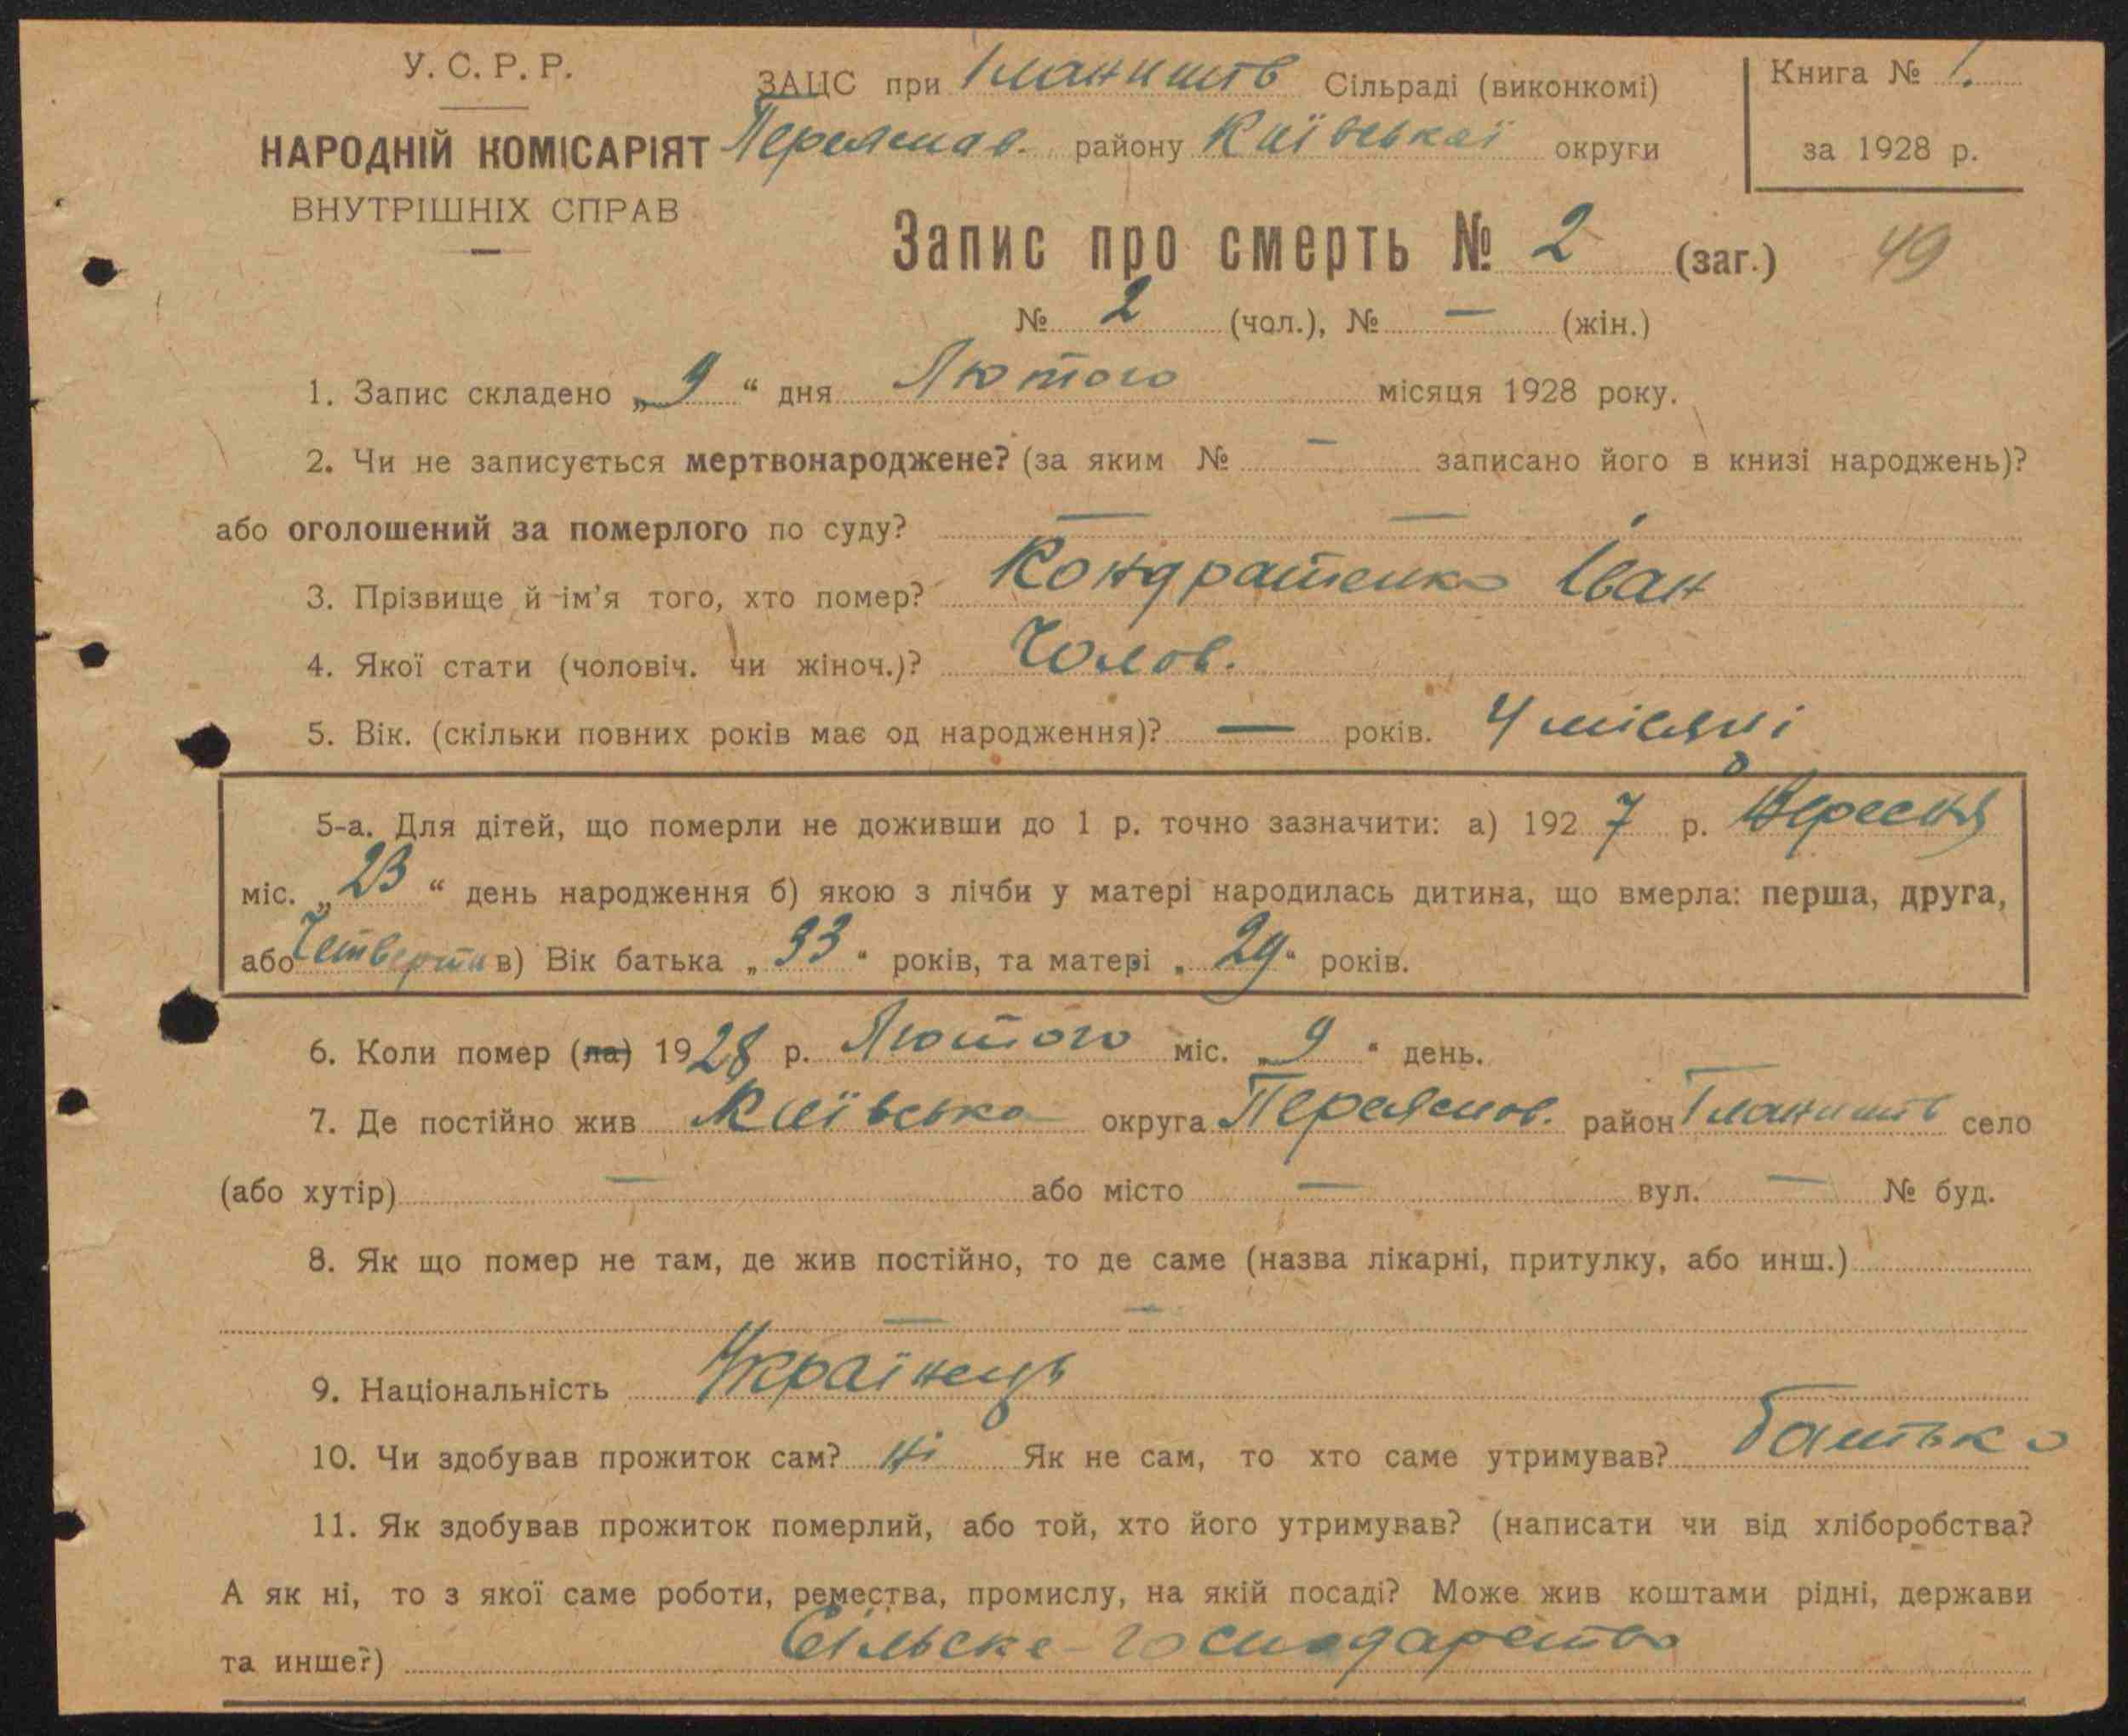 У. С. Р. Р.
НАРОДНІЙ КОМІСАРІЯТ
ВНУТРІШНІХ СПРАВ
ЗАЦС при Гланишів Сільраді (виконкомі)
Переяслав. району Київської округи
Книга № 1.
за 1928 р.
Запис про смерть № 2 (заг.) 49
№ 2 (чол.), № — (жін.)
1. Запис складено „9“ дня Лютого місяця 1928 року.
2. Чи не записується мертвонароджене? (за яким № — записано його в книзі народжень)?
або оголошений за померлого по суду? — —
3. Прізвище й ім’я того, хто помер? Кондратенко Іван
4. Якої стати (чоловіч. чи жіноч.)? Чолов.
5. Вік. (скільки повних років має од народження)? — років. 4 місяці
5-а. Для дітей, що померли не доживши до 1 р. точно зазначити: а) 1927 р. Вересня
міс. „23“ день народження б) якою з лічби у матері народилась дитина, що вмерла: перша, друга,
або Четверта в) Вік батька „33“ років, та матері „29“ років.
6. Коли помер (ла) 1928 р. Лютого міс. „9“ день.
7. Де постійно жив Київська округа Переяслов. район Гланишів село
(або хутір) — або місто — вул. — № буд.
8. Як що помер не там, де жив постійно, то де саме (назва лікарні, притулку, або инш.)
— —
9. Національність Українець
10. Чи здобував прожиток сам? Ні Як не сам, то хто саме утримував? Батько
11. Як здобував прожиток померлий, або той, хто його утримував? (написати чи від хліборобства?
А як ні, то з якої саме роботи, ремества, промислу, на якій посаді? Може жив коштами рідні, держави
та инше?) Сільске-господарство